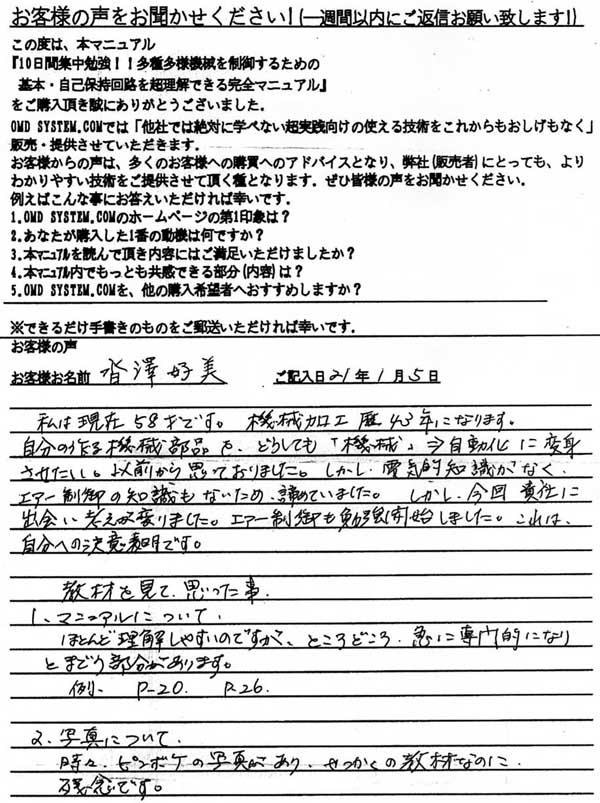 お客様の声をお聞かせください!(一週間以内にご返信お願い致します!)
この度は、本マニュアル
『10日間集中勉強！！多種多様機械を制御するための
基本・自己保持回路を超理解できる完全マニュアル』
をご購入頂き誠にありがとうございました。
OMD SYSTEM.COMでは「他社では絶対に学べない超実践向けの使える技術をこれからもおしげもなく」
販売・提供させていただきます。
お客様からの声は、多くのお客様への購買へのアドバイスとなり、弊社(販売者)にとっても、より
わかりやすい技術をご提供させて頂く種となります。ぜひ皆様の声をお聞かせください。
例えばこんな事にお答えいただければ幸いです。
1.OMD SYSTEM.COMのホームページの第1印象は？
2.あなたが購入した1番の動機は何ですか？
3.本マニュアルを読んで頂き内容にはご満足いただけましたか？
4.本マニュアル内でもっとも共感できる部分(内容)は？
5.OMD SYSTEM.COMを、他の購入希望者へおすすめしますか？
※できるだけ手書きのものをご郵送いただければ幸いです。
お客様の声
お客様お名前 澤好美 ご記入日21年1月5日
私は現在58才です。機械加工歴43年になります。
自分の作る機械部品を、どうしても「機械」⇒自動化に変身
させたいし。以前から思っておりました。しかし、電気的知識がなく、
エアー制御の知識もないため、諦めていました。しかし、今回貴社に
出会い考えが変りました。エアー制御も勉強開始しました。これは、
自分への決意表明です。
教材を見て、思った事、
1、マニュアルについて、
ほとんど理解しやすいのですが、ところどころ、急に専門的になり
とまどう部分があります。
例、 P-20. P.26.
2、写真について、
時々、ピンボケの写真があり、せっかくの教材なのに、
残念です。